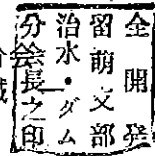 全開発
留萌支部
治水・ダム
分会長之印